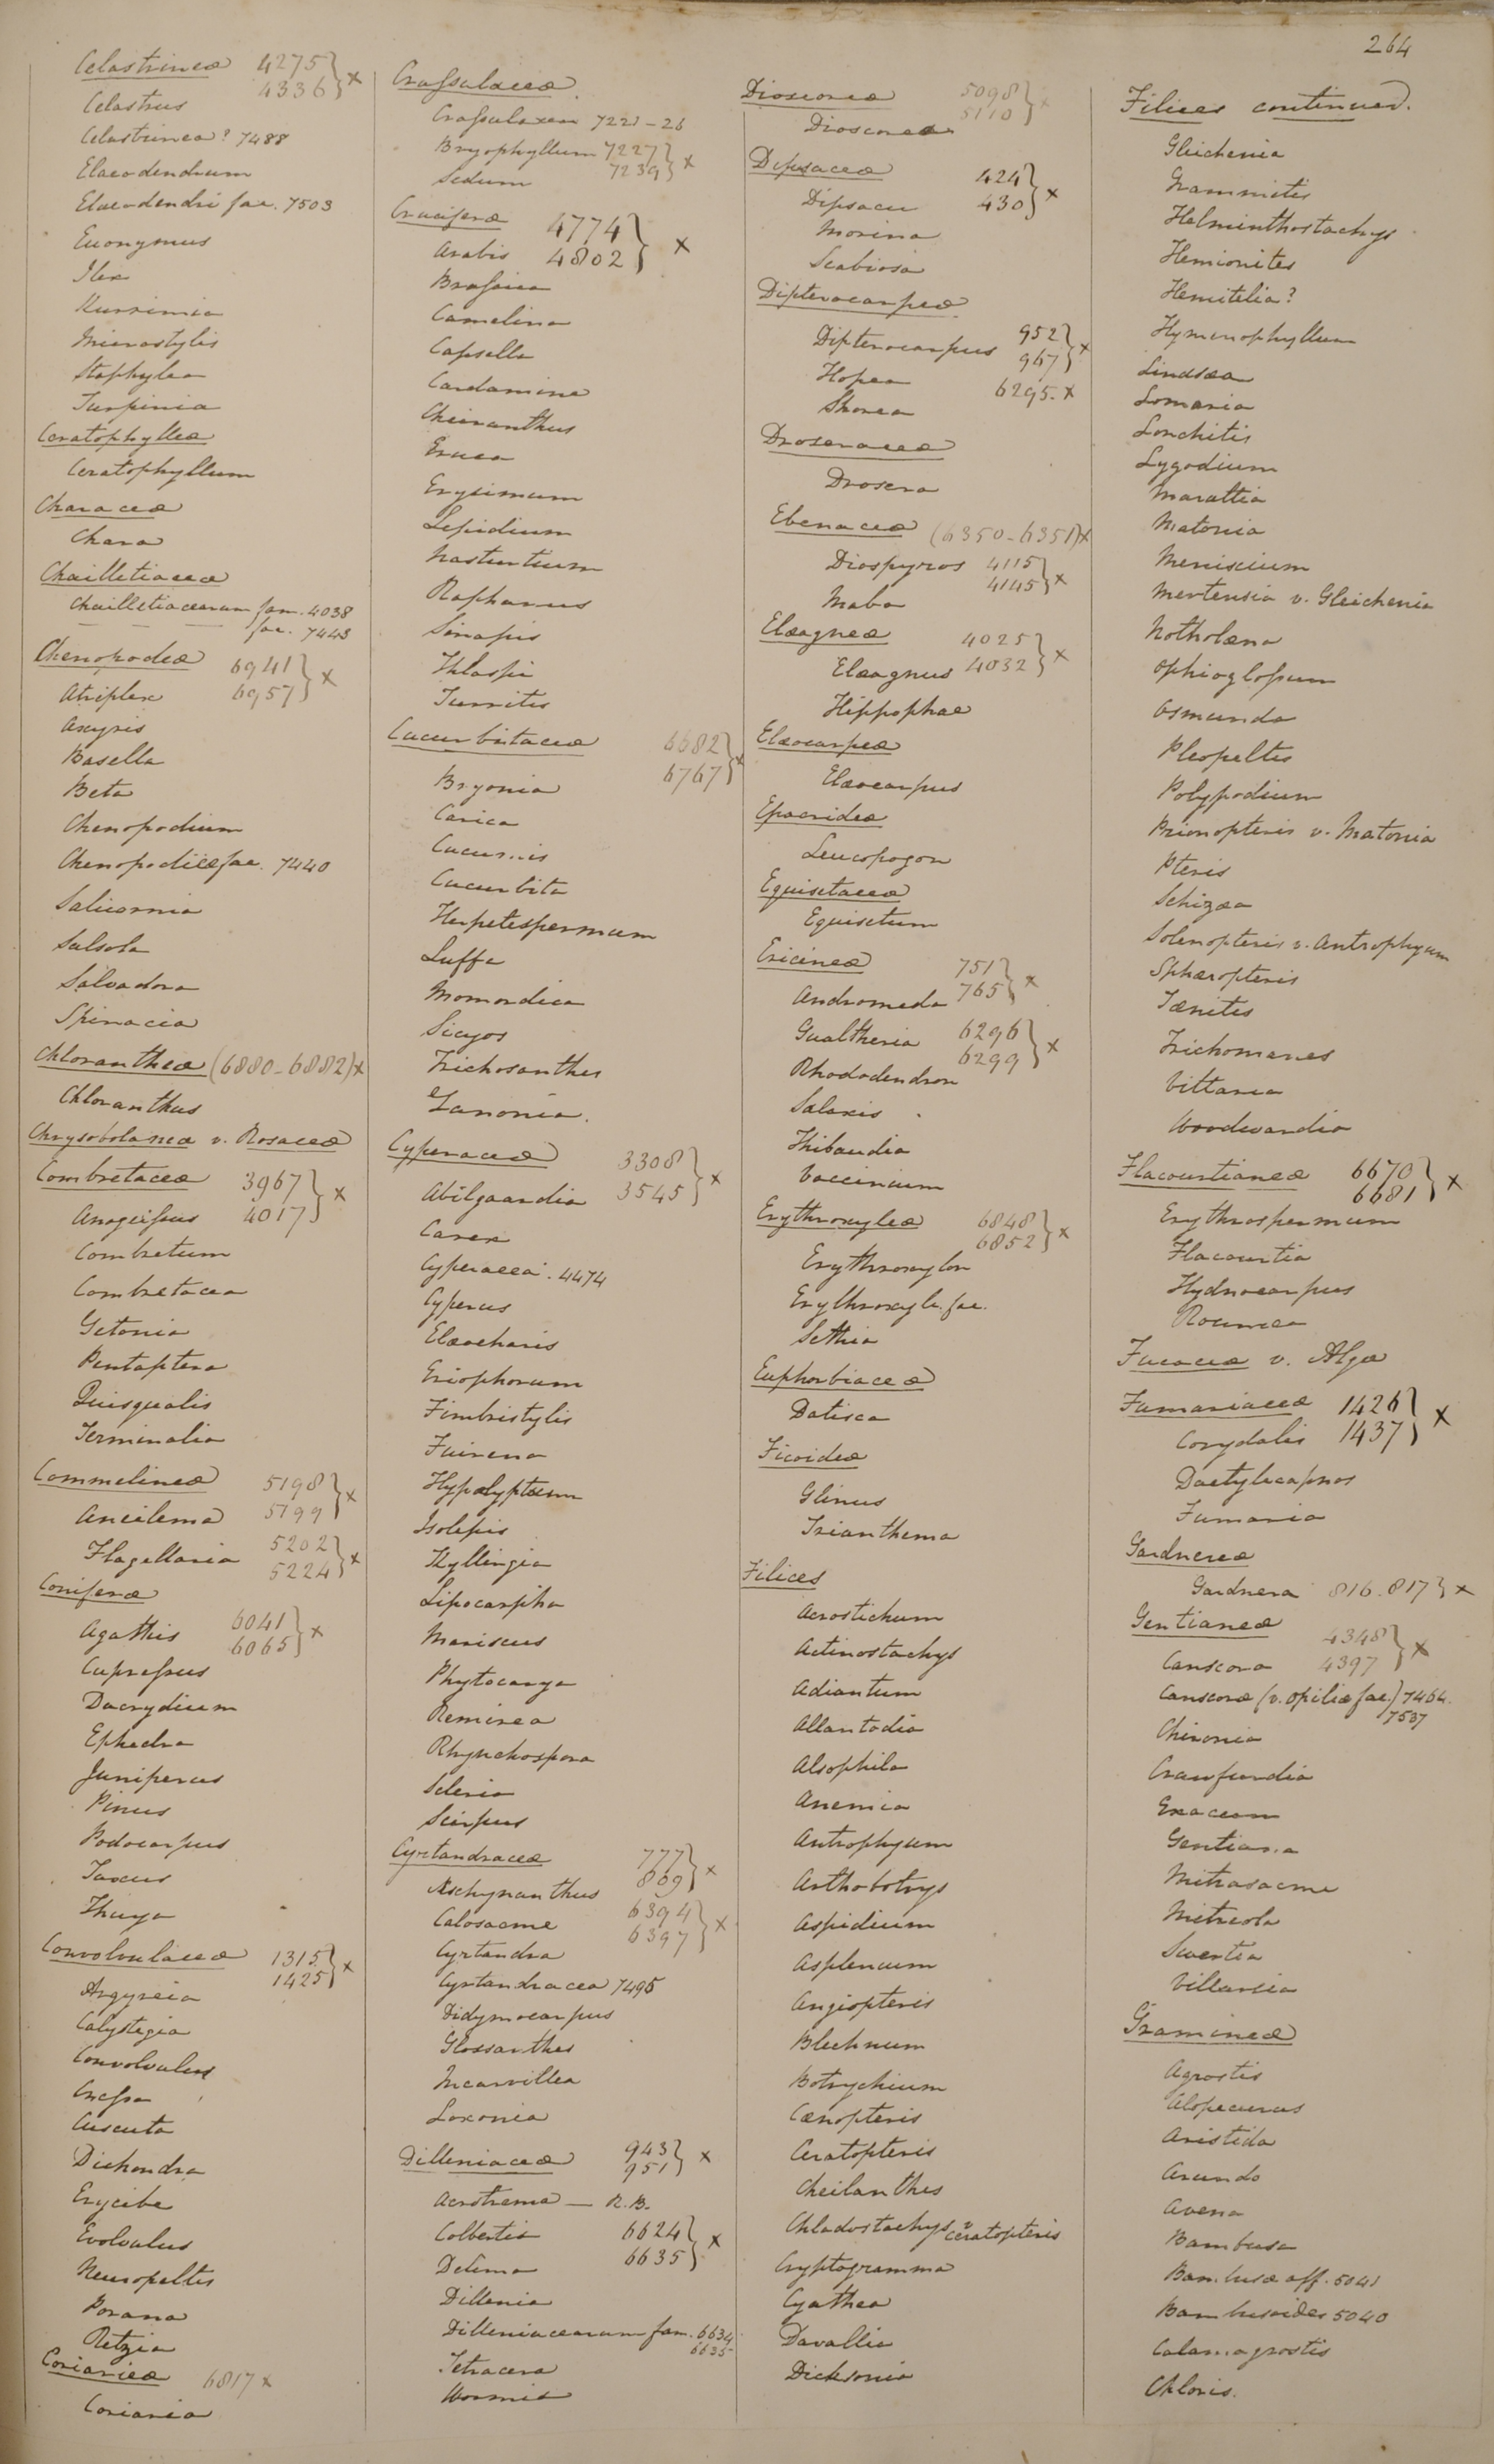 264
Celastrineæ 4275
4336 } x
Celastrus
Celastrinea? 7488
Elaeodendrum
Elaeodendri fac. 7503
Euonymus
Ilex
Kurrimia
Microstylis
Staphylea
Turpinia
Ceratophylleæ
Ceratophyllum
Characeæ
Chara
Chailletiaceæ
Chailletiacearum fam. 4038
— — fac. 7443
Chenopodeæ 6941
Atriplex 6957 } x
Axyris
Basella
Beta
Chenopodium
Chenopodiiæ fac. 7440
Salicornia
Salsola
Salvadora
Spinacia
Chlorantheæ (6880-6882) x
Chloranthus
Chrysobolaneæ v. Rosaceæ
Combretaceæ 3967
Anogeissus 4017 } x
Combretum
Combretacea
Getonia
Pentaptera
Quisqualis
Terminalia
Commelineæ 5198
Aneilema 5199 } x
Flagellaria 5202
5224 } x
Coniferæ
Agathis 6041
6065 } x
Cupressus
Dacrydium
Ephedra
Juniperus
Pinus
Podocarpus
Taxus
Thuya
Convolvulaceæ 1315
1425 } x
Argyreia
Calystegia
Convolvulus
Cressa
Cuscuta
Dichondra
Erycibe
Evolvulus
Neuropeltis
Porana
Retzia
Coriarieæ 6817 x
Coriaria
Crassulaceæ
Crassulaceæ 7221-26
Bryophyllum 7227
Sedum 7239 } x
Cruciferæ 4774
Arabis 4802 } x
Brassica
Camelina
Capsella
Cardamine
Cheiranthus
Eruca
Erysimum
Lepidium
Nasturtium
Raphanus
Sinapis
Thlaspi
Turritis
Cucurbitaceæ 6682
6767 } x
Bryonia
Carica
Cucumis
Cucurbita
Herpetespermum
Luffa
Momordica
Sicyos
Trichosanthes
Zanonia.
Cyperaceæ 3308
Abilgaardia 3545 } x
Carex
Cyperacea. 4474
Cyperus
Elæocharis
Eriophorum
Fimbristylis
Fuirena
Hypælyptum
Isolepis
Kyllingia
Lipocarpha
Mariscus
Phytocarya
Remirea
Rhynchospora
Scleria
Scirpus
Cyrtandraceæ 777
Æschynanthus 869 } x
Calosacme 6394
6397 } x
Cyrtandra
Cyrtandracea 7495
Didymocarpus
Glossanthes
Incarvillea
Loxonia
Dilleniaceæ 943
951 } x
Acrotrema — R.B.
Colbertia 6624
Delima 6635 } x
Dillenia
Dilleniacearum fam. 6634
6635
Tetracera
Wormia
Dioscoreæ 5098
5110 } x
Dioscorea
Dipsaceæ 424
Dipsacu 430 } x
Morina
Scabiosa
Dipterocarpeæ
Dipterocarpus 952
967 } x
Hopea 6295. x
Shorea
Droseraceæ
Drosera
Ebenaceæ (6350-6351) x
Diospyros 4115
4145 } x
Maba
Elæagneæ 4025
Elæagnus 4032 } x
Hippophae
Elæocarpeæ
Elæocarpus
Epacrideæ
Leucopogon
Equisetaceæ
Equisetum
Ericineæ 751
Andromeda 765 } x
Gualtheria 6296
6299 } x
Rhododendron
Salaxis
Thibaudia
Vaccinium
Erythroxyleæ 6848
6852 } x
Erythroxylon
Erythroxyle. fac.
Sethia
Euphorbiaceæ
Datisca
Ficoideæ
Glinus
Trianthema
Filices
Acrostichum
Actinostachys
Adiantum
Allantodia
Alsophila
Anemia
Antrophyum
Arthobotrys
Aspidium
Asplenium
Angiopteris
Blechnum
Botrychium
Cænopteris
Ceratopteris
Cheilanthes
Chladostachys v. Ceratopteris
Cryptogramma
Cyathea
Davallia
Dicksonia
Filices continued.
Gleichenia
Grammitis
Helminthostachys
Hemionites
Hemitelia?
Hymenophyllum
Lindsæa
Lomaria
Lonchitis
Lygodium
Marattia
Matonia
Meniscium
Mertensia v. Gleichenia
Notholæna
Ophioglossum
Osmunda
Pleopeltis
Polypodium
Prionopteris v. Matonia
Pteris
Schizæa
Solenopteris v. Antrophyum
Sphæropteris
Tænitis
Trichomanes
Vittaria
Woodwardia
Flacourtianeæ 6670
6681 } x
Erythrospermum
Flacourtia
Hydnocarpus
Roumea
Fucaceæ v. Algæ
Fumariaceæ 1426
Corydalis 1437 } x
Dactylicapnos
Fumaria
Gardnereæ
Gardnera 816.817 } x
Gentianeæ 4348
Canscora 4397 } x
Canscoræ (v. Opiliæ fac.) 7464.
7537
Chironia
Crawfurdia
Exacum
Gentiana
Mitrasacme
Mitreola
Swertia
Villarsia
Gramineæ
Agrostis
Alopecurus
Aristida
Arundo
Avena
Bambusa
Bambusæ aff. 5041
Bambusoides 5040
Calamagrostis
Chloris.